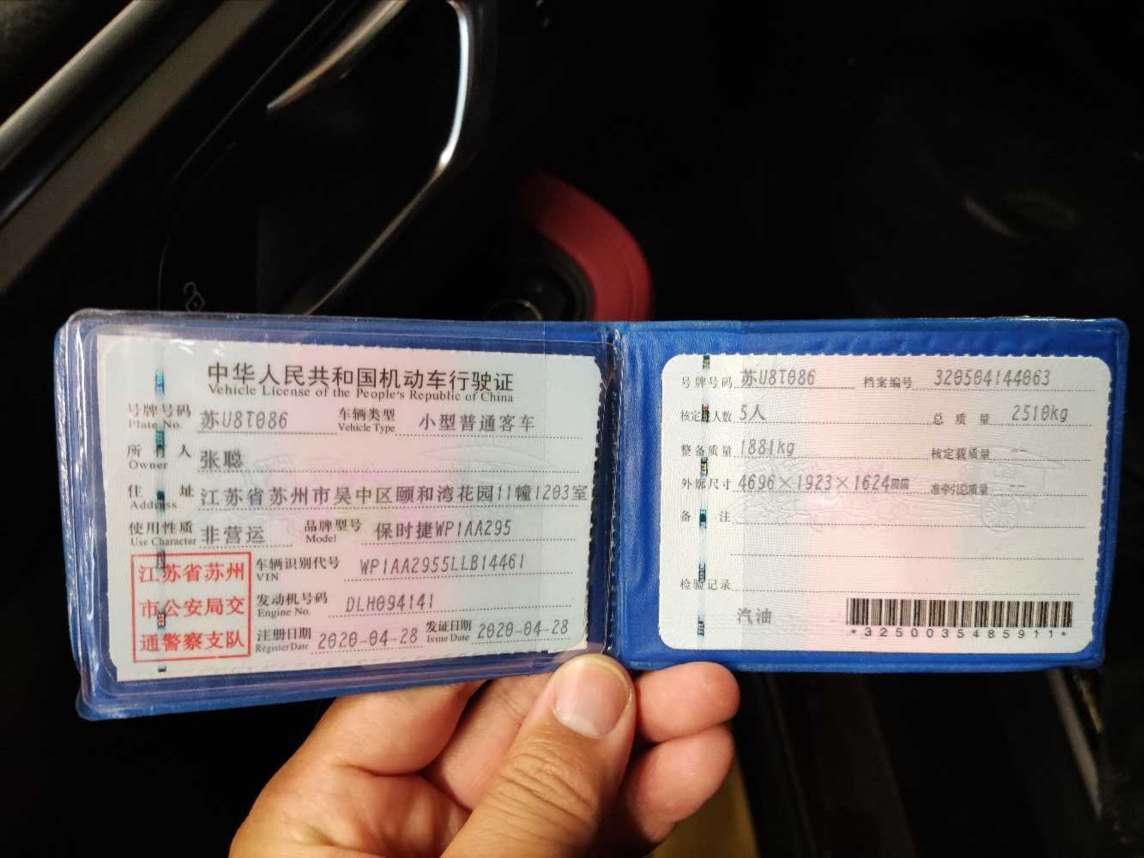 中华人民共和国机动车行驶证
Vehicle License of the People's Republic of China
号牌号码 苏U8T086 车辆类型 小型普通客车
Plate No. Vehicle Type
所有人 张聪
Owner
住址 江苏省苏州市吴中区颐和湾花园11幢1203室
Address
使用性质 非营运 品牌型号 保时捷WP1AA295
Use Character Model
江苏省苏州
市公安局交
通警察支队
车辆识别代号 WP1AA2955LLB14461
VIN
发动机号码 DLH094141
Engine No.
注册日期 2020-04-28 发证日期 2020-04-28
Register Date Issue Date
号牌号码 苏U8T086 档案编号 320504144063
核定载人数 5人 总质量 2510kg
整备质量 1881kg 核定载质量 --
外廓尺寸 4696×1923×1624mm 准牵引总质量 --
备注
检验记录
汽油
*3250035485911*